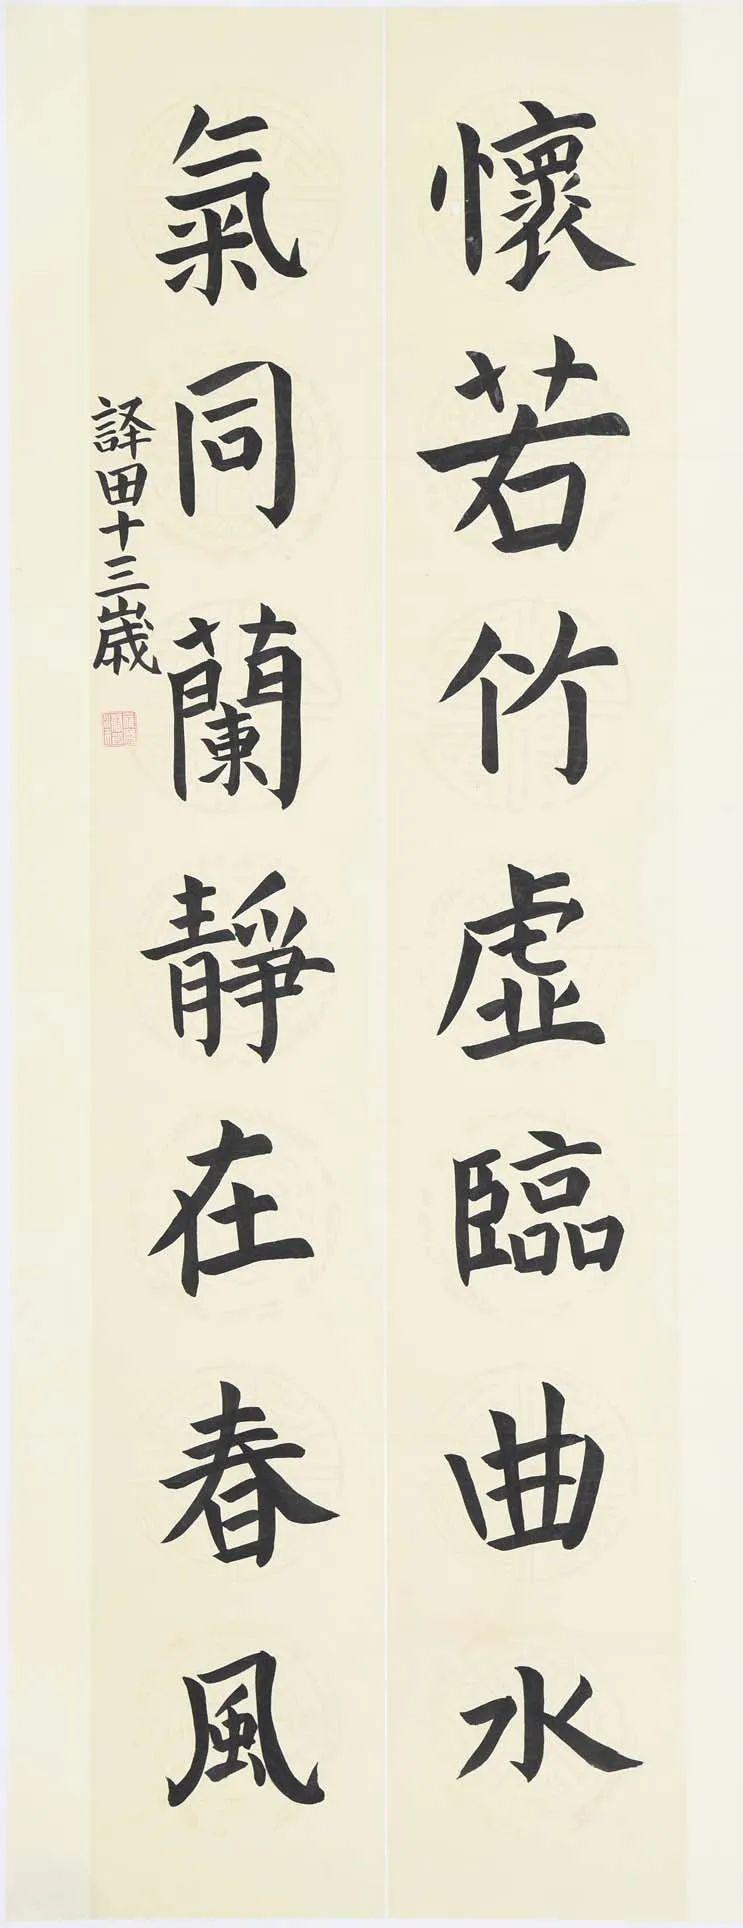 懷若竹虛臨曲水
氣同蘭靜在春風
譯田十三歲